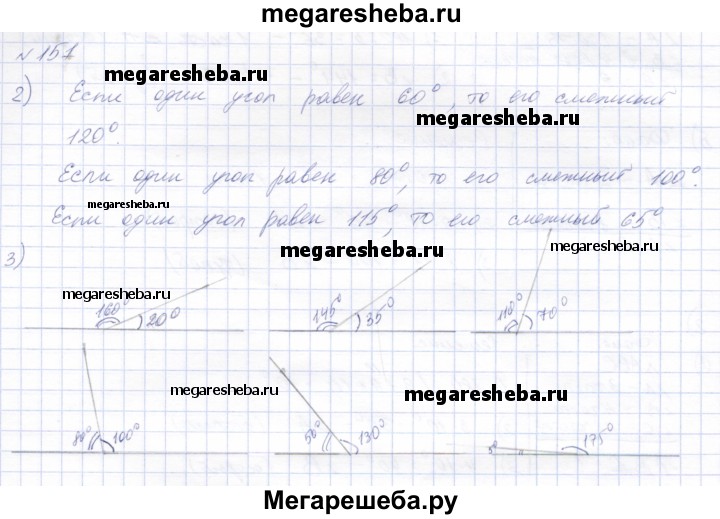 megaresheba.ru
№ 151
megaresheba.ru
2) Если один угол равен 60°, то его смежный
megaresheba.ru
120°.
Если один угол равен 80°, то его смежный 100°.
megaresheba.ru
Если один угол равен 115°, то его смежный 65°.
megaresheba.ru megaresheba.ru
3)
megaresheba.ru
160° 20° 145° 35° 110° 70°
megaresheba.ru megaresheba.ru
80° 100° 50° 130° 5° 175°
Мегарешеба.ру